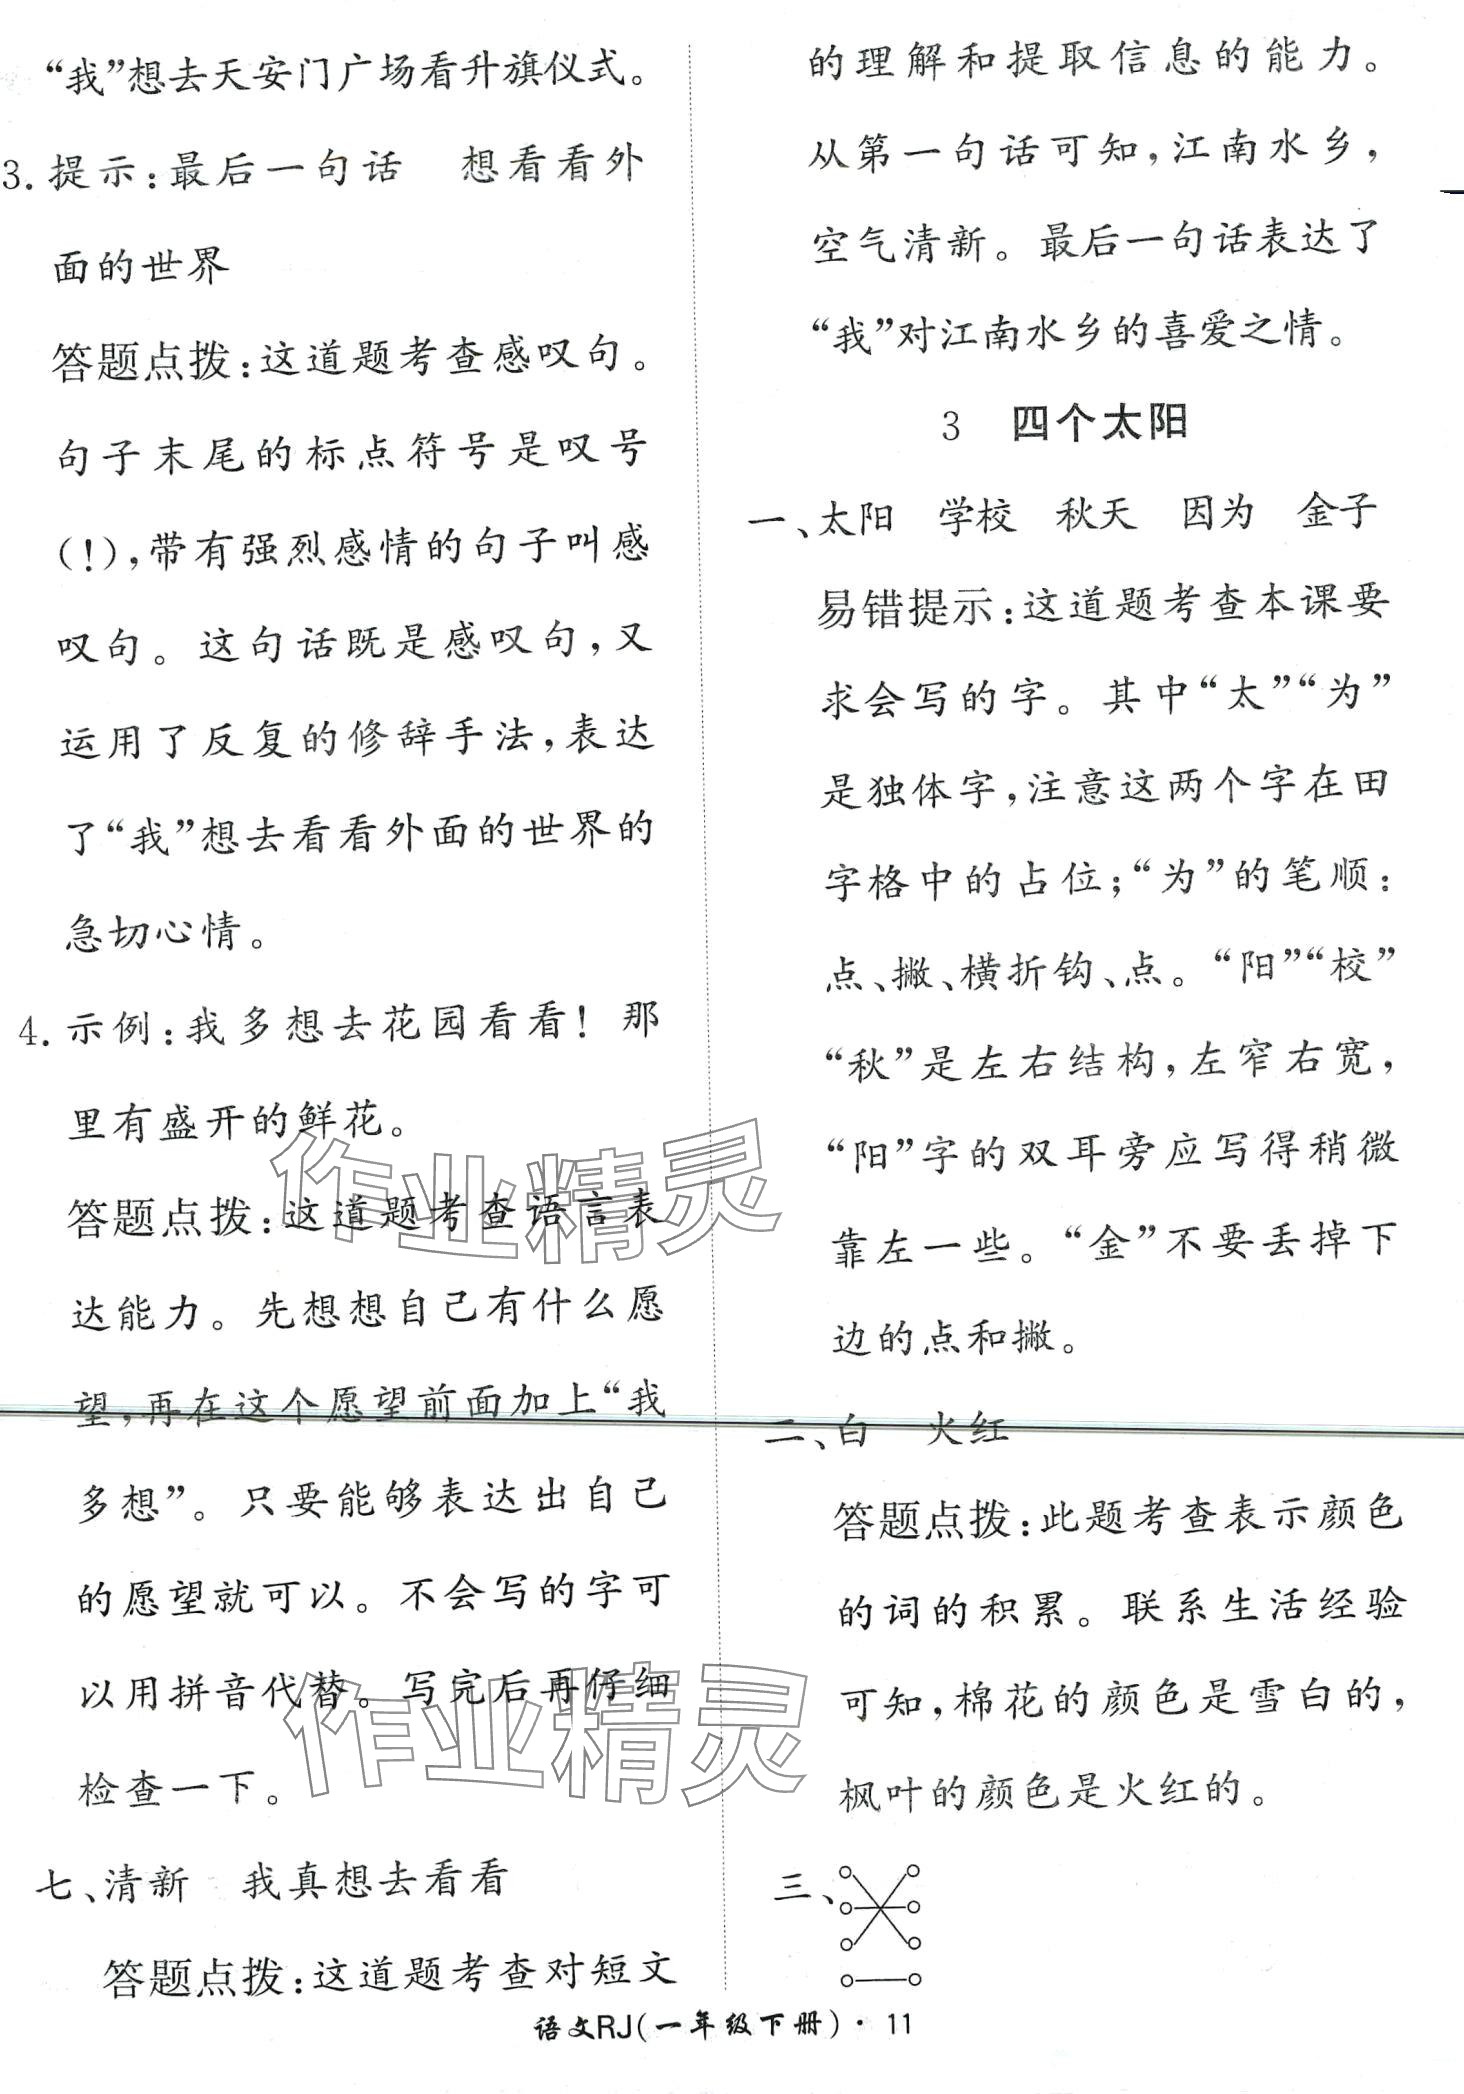 “我”想去天安门广场看升旗仪式。
3. 提示：最后一句话　想看看外
面的世界
答题点拨：这道题考查感叹句。
句子末尾的标点符号是叹号
（！），带有强烈感情的句子叫感
叹句。这句话既是感叹句，又
运用了反复的修辞手法，表达
了“我”想去看看外面的世界的
急切心情。
4. 示例：我多想去花园看看！那
里有盛开的鲜花。
答题点拨：这道题考查语言表
达能力。先想想自己有什么愿
望，再在这个愿望前面加上“我
多想”。只要能够表达出自己
的愿望就可以。不会写的字可
以用拼音代替。写完后再仔细
检查一下。
七、清新　我真想去看看
答题点拨：这道题考查对短文
的理解和提取信息的能力。
从第一句话可知，江南水乡，
空气清新。最后一句话表达了
“我”对江南水乡的喜爱之情。
3　四个太阳
一、太阳　学校　秋天　因为　金子
易错提示：这道题考查本课要
求会写的字。其中“太”“为”
是独体字，注意这两个字在田
字格中的占位；“为”的笔顺：
点、撇、横折钩、点。“阳”“校”
“秋”是左右结构，左窄右宽，
“阳”字的双耳旁应写得稍微
靠左一些。“金”不要丢掉下
边的点和撇。
二、白　火红
答题点拨：此题考查表示颜色
的词的积累。联系生活经验
可知，棉花的颜色是雪白的，
枫叶的颜色是火红的。
三、
语文RJ（一年级下册）· 11
作业精灵
作业精灵